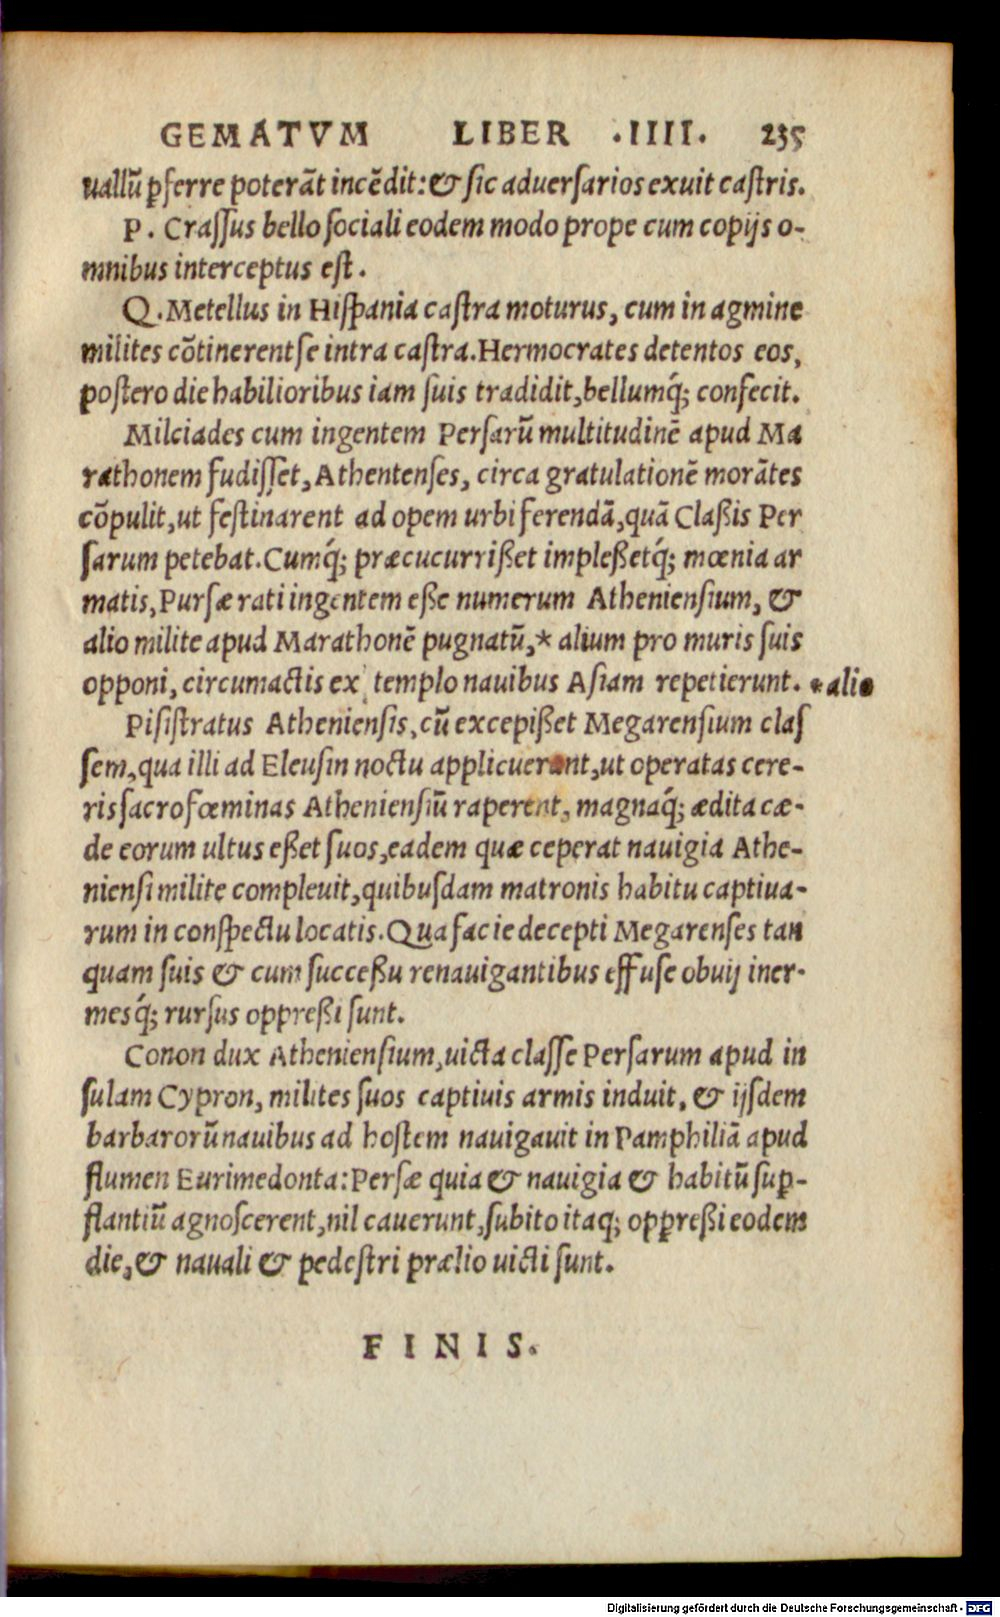 GEMATVM LIBER .IIII. 235
uallũ ꝑferre poterãt incẽdit: & sic aduersarios exuit castris.
P. Crassus bello sociali eodem modo prope cum copijs o-
mnibus interceptus est.
Q. Metellus in Hispania castra moturus, cum in agmine
milites cõtinerent se intra castra. Hermocrates detentos eos,
postero die habilioribus iam suis tradidit, bellumq́; confecit.
Milciades cum ingentem Persarũ multitudinẽ apud Ma
rathonem fudisset, Athentenses, circa gratulationẽ morãtes
cõpulit, ut festinarent ad opem urbi ferendã, quã Claßis Per
sarum petebat. Cumq́; præcucurrißet impleßetq́; mœnia ar
matis, Pursæ rati ingentem eße numerum Atheniensium, &
alio milite apud Marathonẽ pugnatũ,* alium pro muris suis
opponi, circumactis ex templo nauibus Asiam repetierunt. * alio
Pisistratus Atheniensis, cũ excepißet Megarensium clas
sem, qua illi ad Eleusin noctu applicuerant, ut operatas cere-
ris sacro fœminas Atheniensiũ raperent, magnaq́; ædita cæ-
de eorum ultus eßet suos, eadem quæ ceperat nauigia Athe-
niensi milite compleuit, quibusdam matronis habitu captiua-
rum in conspectu locatis. Qua facie decepti Megarenses tan
quam suis & cum succeßu renauigantibus effuse obuij iner-
mesq́; rursus oppreßi sunt.
Conon dux Atheniensium, uicta classe Persarum apud in
sulam Cypron, milites suos captiuis armis induit, & ijsdem
barbarorũ nauibus ad hostem nauigauit in Pamphiliã apud
flumen Eurimedonta: Persæ quia & nauigia & habitũ suꝑ-
stantiũ agnoscerent, nil cauerunt, subito itaq; opꝑreßi eodem
die, & nauali & pedestri prælio uicti sunt.
FINIS.
Digitalisierung gefördert durch die Deutsche Forschungsgemeinschaft - DFG